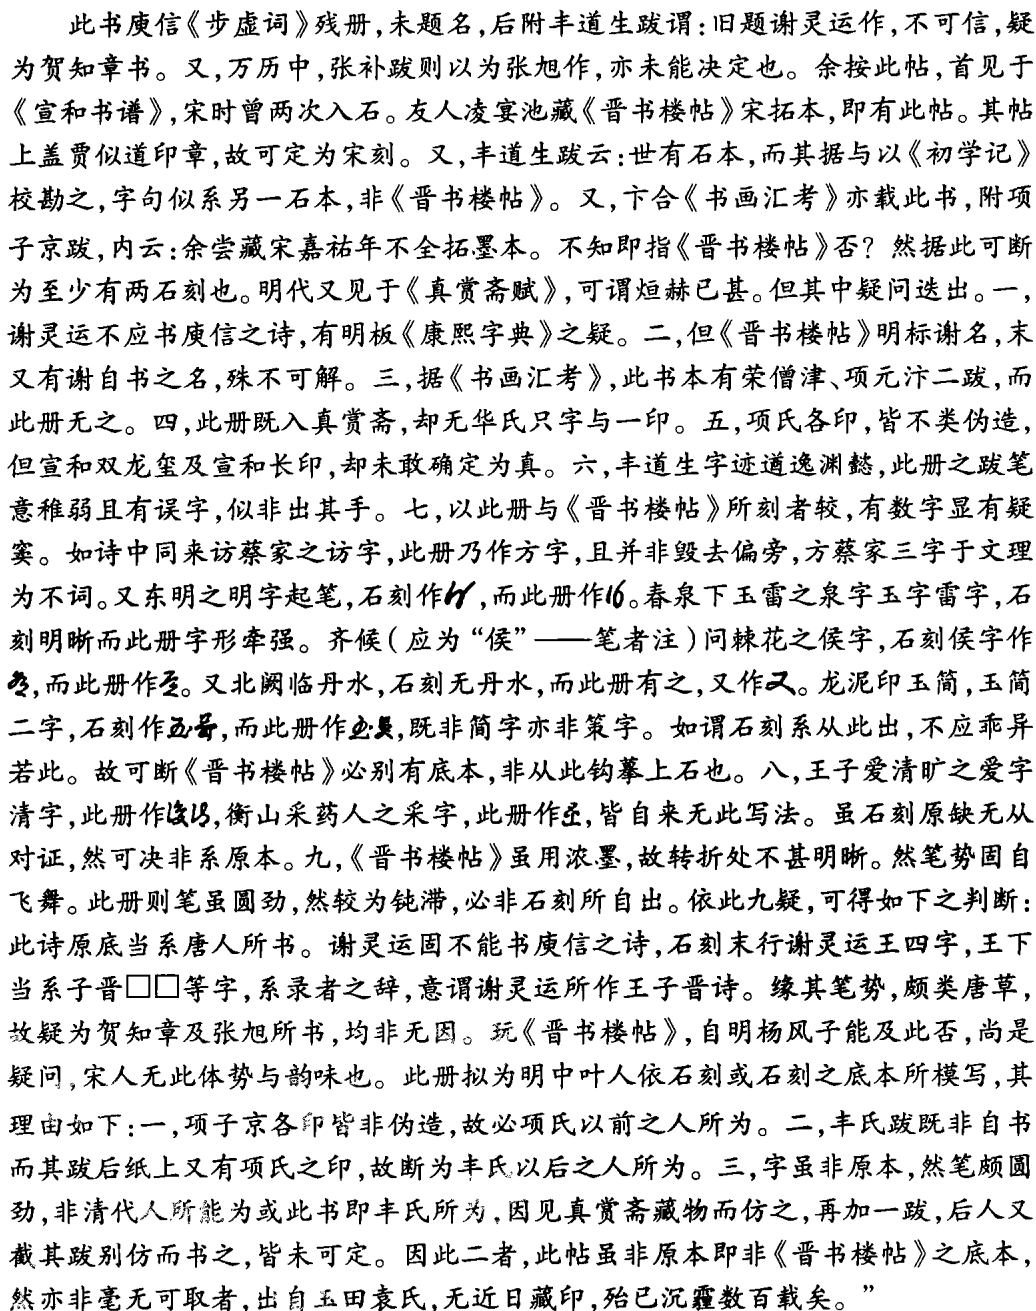 此书庾信《步虚词》残册,未题名,后附丰道生跋谓:旧题谢灵运作,不可信,疑
为贺知章书。又,万历中,张补跋则以为张旭作,亦未能决定也。余按此帖,首见于
《宣和书谱》,宋时曾两次入石。友人凌宴池藏《晋书楼帖》宋拓本,即有此帖。其帖
上盖贾似道印章,故可定为宋刻。又,丰道生跋云:世有石本,而其据与以《初学记》
校勘之,字句似系另一石本,非《晋书楼帖》。又,卞合《书画汇考》亦载此书,附项
子京跋,内云:余尝藏宋嘉祐年不全拓墨本。不知即指《晋书楼帖》否?然据此可断
为至少有两石刻也。明代又见于《真赏斋赋》,可谓烜赫已甚。但其中疑问迭出。一,
谢灵运不应书庾信之诗,有明板《康熙字典》之疑。二,但《晋书楼帖》明标谢名,末
又有谢自书之名,殊不可解。三,据《书画汇考》,此书本有荣僧津、项元汴二跋,而
此册无之。四,此册既入真赏斋,却无华氏只字与一印。五,项氏各印,皆不类伪造,
但宣和双龙玺及宣和长印,却未敢确定为真。六,丰道生字迹遒逸渊懿,此册之跋笔
意稚弱且有误字,似非出其手。七,以此册与《晋书楼帖》所刻者较,有数字显有疑
窦。如诗中同来访蔡家之访字,此册乃作方字,且并非毁去偏旁,方蔡家三字于文理
为不词。又东明之明字起笔,石刻作,而此册作。春泉下玉雷之泉字玉字雷字,石
刻明晰而此册字形牵强。齐候(应为“侯”——笔者注)问棘花之侯字,石刻侯字作
,而此册作。又北阙临丹水,石刻无丹水,而此册有之,又作又。龙泥印玉简,玉简
二字,石刻作,而此册作,既非简字亦非策字。如谓石刻系从此出,不应乖异
若此。故可断《晋书楼帖》必别有底本,非从此钩摹上石也。八,王子爱清旷之爱字
清字,此册作,衡山采药人之采字,此册作,皆自来无此写法。虽石刻原缺无从
对证,然可决非系原本。九,《晋书楼帖》虽用浓墨,故转折处不甚明晰。然笔势固自
飞舞。此册则笔虽圆劲,然较为钝滞,必非石刻所自出。依此九疑,可得如下之判断:
此诗原底当系唐人所书。谢灵运固不能书庾信之诗,石刻末行谢灵运王四字,王下
当系子晋□□等字,系录者之辞,意谓谢灵运所作王子晋诗。缘其笔势,颇类唐草,
故疑为贺知章及张旭所书,均非无因。玩《晋书楼帖》,自明杨风子能及此否,尚是
疑问,宋人无此体势与韵味也。此册拟为明中叶人依石刻或石刻之底本所模写,其
理由如下:一,项子京各印皆非伪造,故必项氏以前之人所为。二,丰氏跋既非自书
而其跋后纸上又有项氏之印,故断为丰氏以后之人所为。三,字虽非原本,然笔颇圆
劲,非清代人所能为或此书即丰氏所为,因见真赏斋藏物而仿之,再加一跋,后人又
截其跋别仿而书之,皆未可定。因此二者,此帖虽非原本即非《晋书楼帖》之底本,
然亦非毫无可取者,出自玉田袁氏,无近日藏印,殆已沉霾数百载矣。”